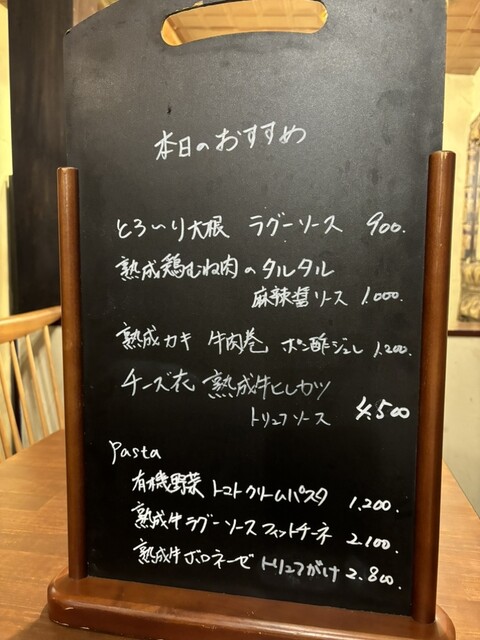 本日のおすすめ
とろ〜り大根 ラグーソース 900.
熟成鶏むね肉のタルタル
麻辣醤ソース 1.000.
熟成カキ 牛肉巻 ポン酢ジュレ 1.200.
チーズ衣 熟成牛ヒレカツ
トリュフソース 4.500
Pasta
有機野菜 トマトクリームパスタ 1.200.
熟成牛ラグーソース フィットチーネ 2.100.
熟成牛ボロネーゼ トリュフがけ 2.800.